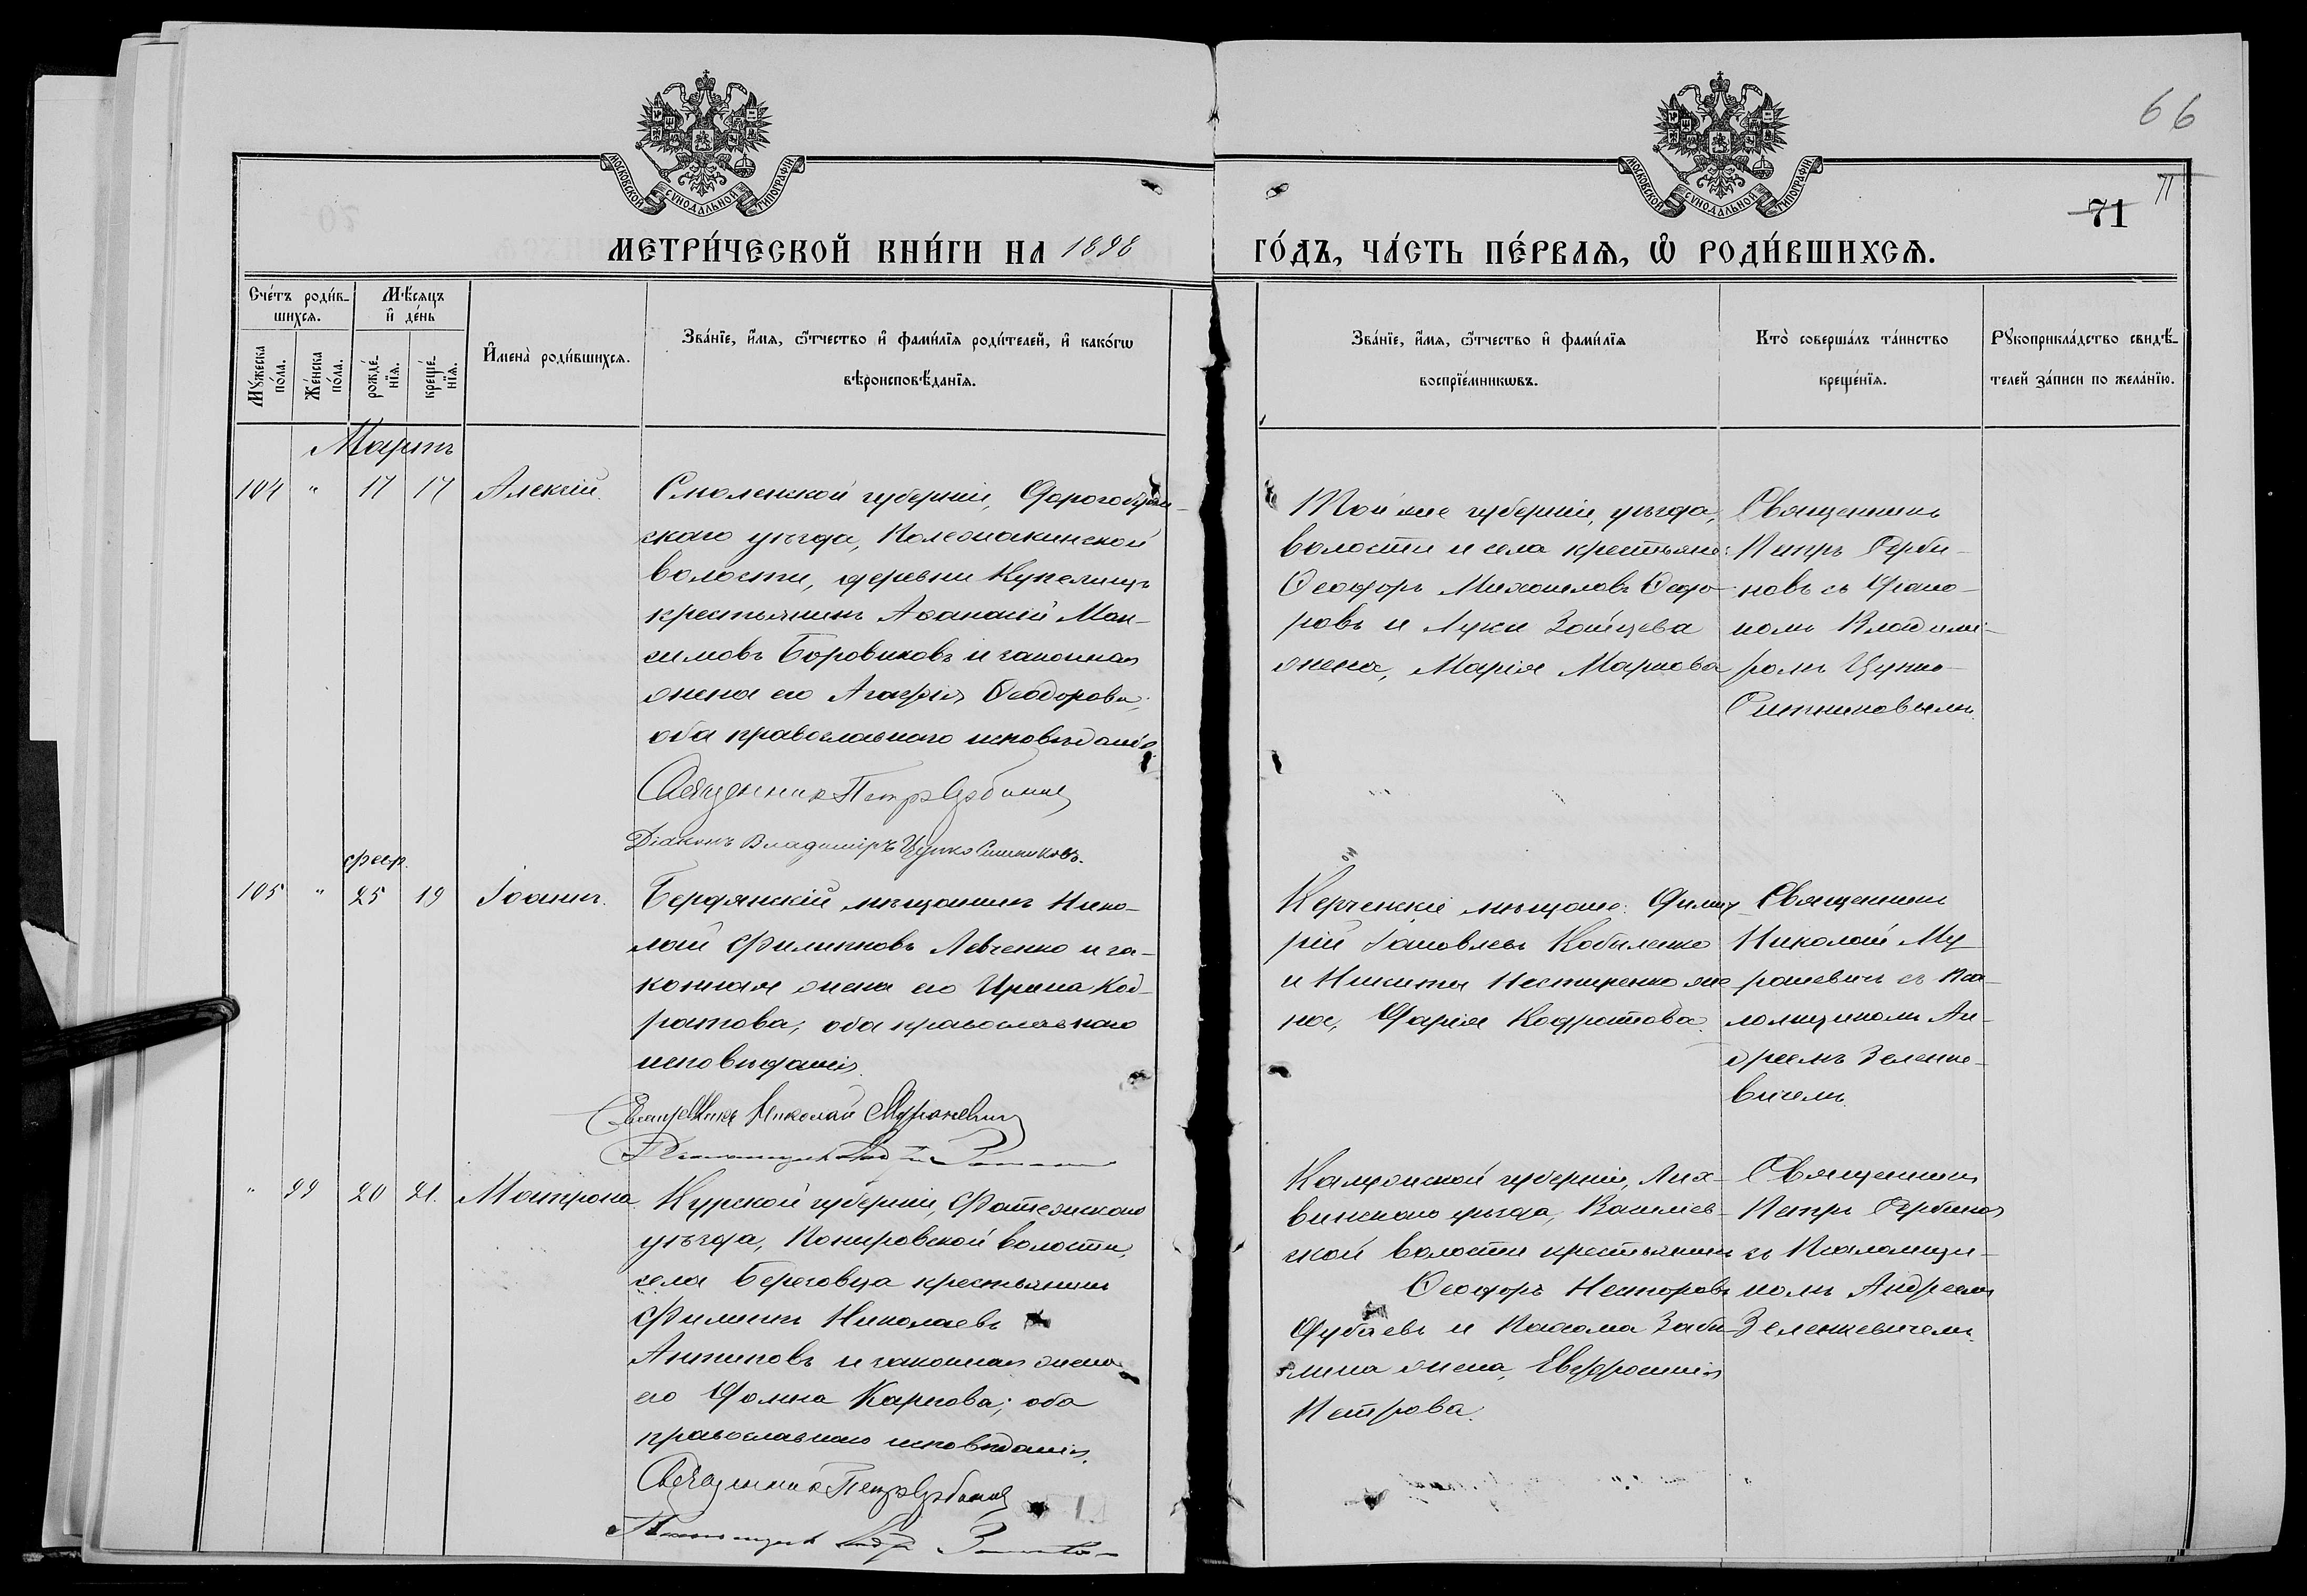 66
МОСКОВСКОЙ СѴНОДАЛЬНОЙ ТИПОГРАФІИ
МОСКОВСКОЙ СѴНОДАЛЬНОЙ ТИПОГРАФІИ
71
МЕТРИ́ЧЕСКОЙ КНИ́ГИ НА 1898 ГО́ДЪ, ЧА́СТЬ ПЕ́РВАѦ, Ѡ РОДИ́ВШИХСѦ.
Сче́тъ роди́в-
шихсѧ.
Мѣ́сѧцъ
и҆ де́нь
Мꙋ́жеска
по́ла.
Же́нска
по́ла.
рожде́-
нїѧ.
креще́-
нїѧ.
И҆мена̀ роди́вшихсѧ.
Зва́нїе, и҆́мѧ, ѻ҆́тчество и҆ фами́лїѧ роди́телей, и҆ како́гѡ
вѣроисповѣ́данїѧ.
Зва́нїе, и҆́мѧ, ѻ҆́тчество и҆ фами́лїѧ
воспрїе́мникѡвъ.
Кто̀ соверша́лъ та́инство
креще́нїѧ.
Рꙋкоприкла́дство свидѣ́-
телей за́писи по жела́нїю.
Мартъ
104 " 17 17 Алексій.
Смоленской губерніи, Дорогобуж-
скаго уѣзда,
волости, деревни Купелищъ
крестьянинъ Аѳанасій Мак-
симовъ Боровиковъ и законная
жена его Агафія Ѳеодорова;
оба православнаго исповѣданія.
Священникъ Петръ Сербиновъ
Діаконъ Владиміръ Цупко Ситниковъ.
Той же губерніи, уѣзда,
волости и села крестьяне:
Ѳеодоръ Михаиловъ Ѳедо-
ровъ и Луки Зайцева
жена, Марія Маркова
Священникъ
Петръ Серби-
новъ съ діако-
номъ Владими-
ромъ Цупко-
Ситниковымъ.
февр.
105 " 25 19 Іоаннъ.
Бердянскій мѣщанинъ Нико-
лай Филипповъ Левченко и за-
конная жена его Ирина Код-
ратова; оба православнаго
исповѣданія.
Священникъ Николай Мураневичъ
Керченскіе мѣщане: Димит-
рій Іаковлевъ Кобиленко
и Никиты Нестеренко же-
на, Дарія Кодратова.
Священникъ
Николай Му-
раневичъ съ Пса-
ломщикомъ Ан-
дреемъ Зеленке-
вичемъ.
" 99 20 21. Матрона
Курской губерніи, Фатежскаго
уѣзда, Поныровской волости,
села Береговца крестьянинъ
Филиппъ Николаевъ
Антиповъ и законная жена
его Домна Карпова; оба
православнаго исповѣданія.
Священникъ Петръ Сербиновъ
Калужской губерніи, Лих-
винскаго уѣзда,
ской волости крестьянинъ
Ѳеодоръ Несторовъ
и
жена, Евфросинія
Петрова.
Священникъ
Петръ Сербиновъ
съ Псаломщи-
комъ Андреемъ
Зеленкевичемъ.